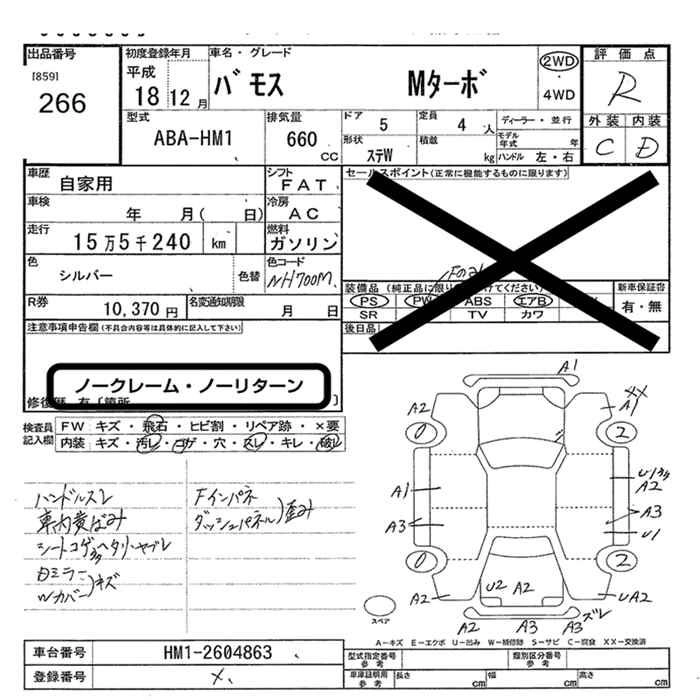 出品番号
[859]
266
初度登録年月
平成
18 12 月
車名・グレード
バモス Mターボ
2WD
・
4WD
評価点
R
外装 内装
C D
型式
ABA-HM1
排気量
660
CC
ドア
5
定員
4 人
ディーラー・並行
モデル年式 年
形状
ステW
積載
kg
ハンドル 左・右
車歴
自家用
シフト
FAT
車検
年 月( 日)
冷房
AC
走行
15万5千240 km
燃料
ガソリン
色
シルバー
色替
色コード
NH700M
R券
10,370 円
名変通知期限
月 日
セールスポイント(正常に機能するものに限ります)
装備品(純正品に限り
けてください)
PS PW ABS エアB
SR TV カワ
新車保証書
有・無
後日品
注意事項申告欄(不具合内容等は具体的に記入して下さい)
ノークレーム・ノーリターン
修復歴 有〔箇所 〕
検査員
記入欄
FW キズ・飛石・ヒビ割・リペア跡・×要
内装 キズ・汚レ・コゲ・穴・スレ・キレ・破レ
ハンドルスレ
車内黄ばみ
シートコゲ穴ヘタリ・ヤブレ
Wカバー)キズ
Fインパネ
ダッシュパネル)歪み
A1
A2
A1
0
2
A1
A2
A3
A3
U1
0
2
A2
U2
A2
UA2
A2
A3
A3
ズレ
スペア
A―キズ E―エクボ U―凹み W―補修跡 S―サビ C―腐食 XX―交換済
車台番号
HM1-2604863
登録番号
型式指定番号
参考
類別区分番号
参考
車庫証明用
参考
長さ cm
幅 cm
高さ cm